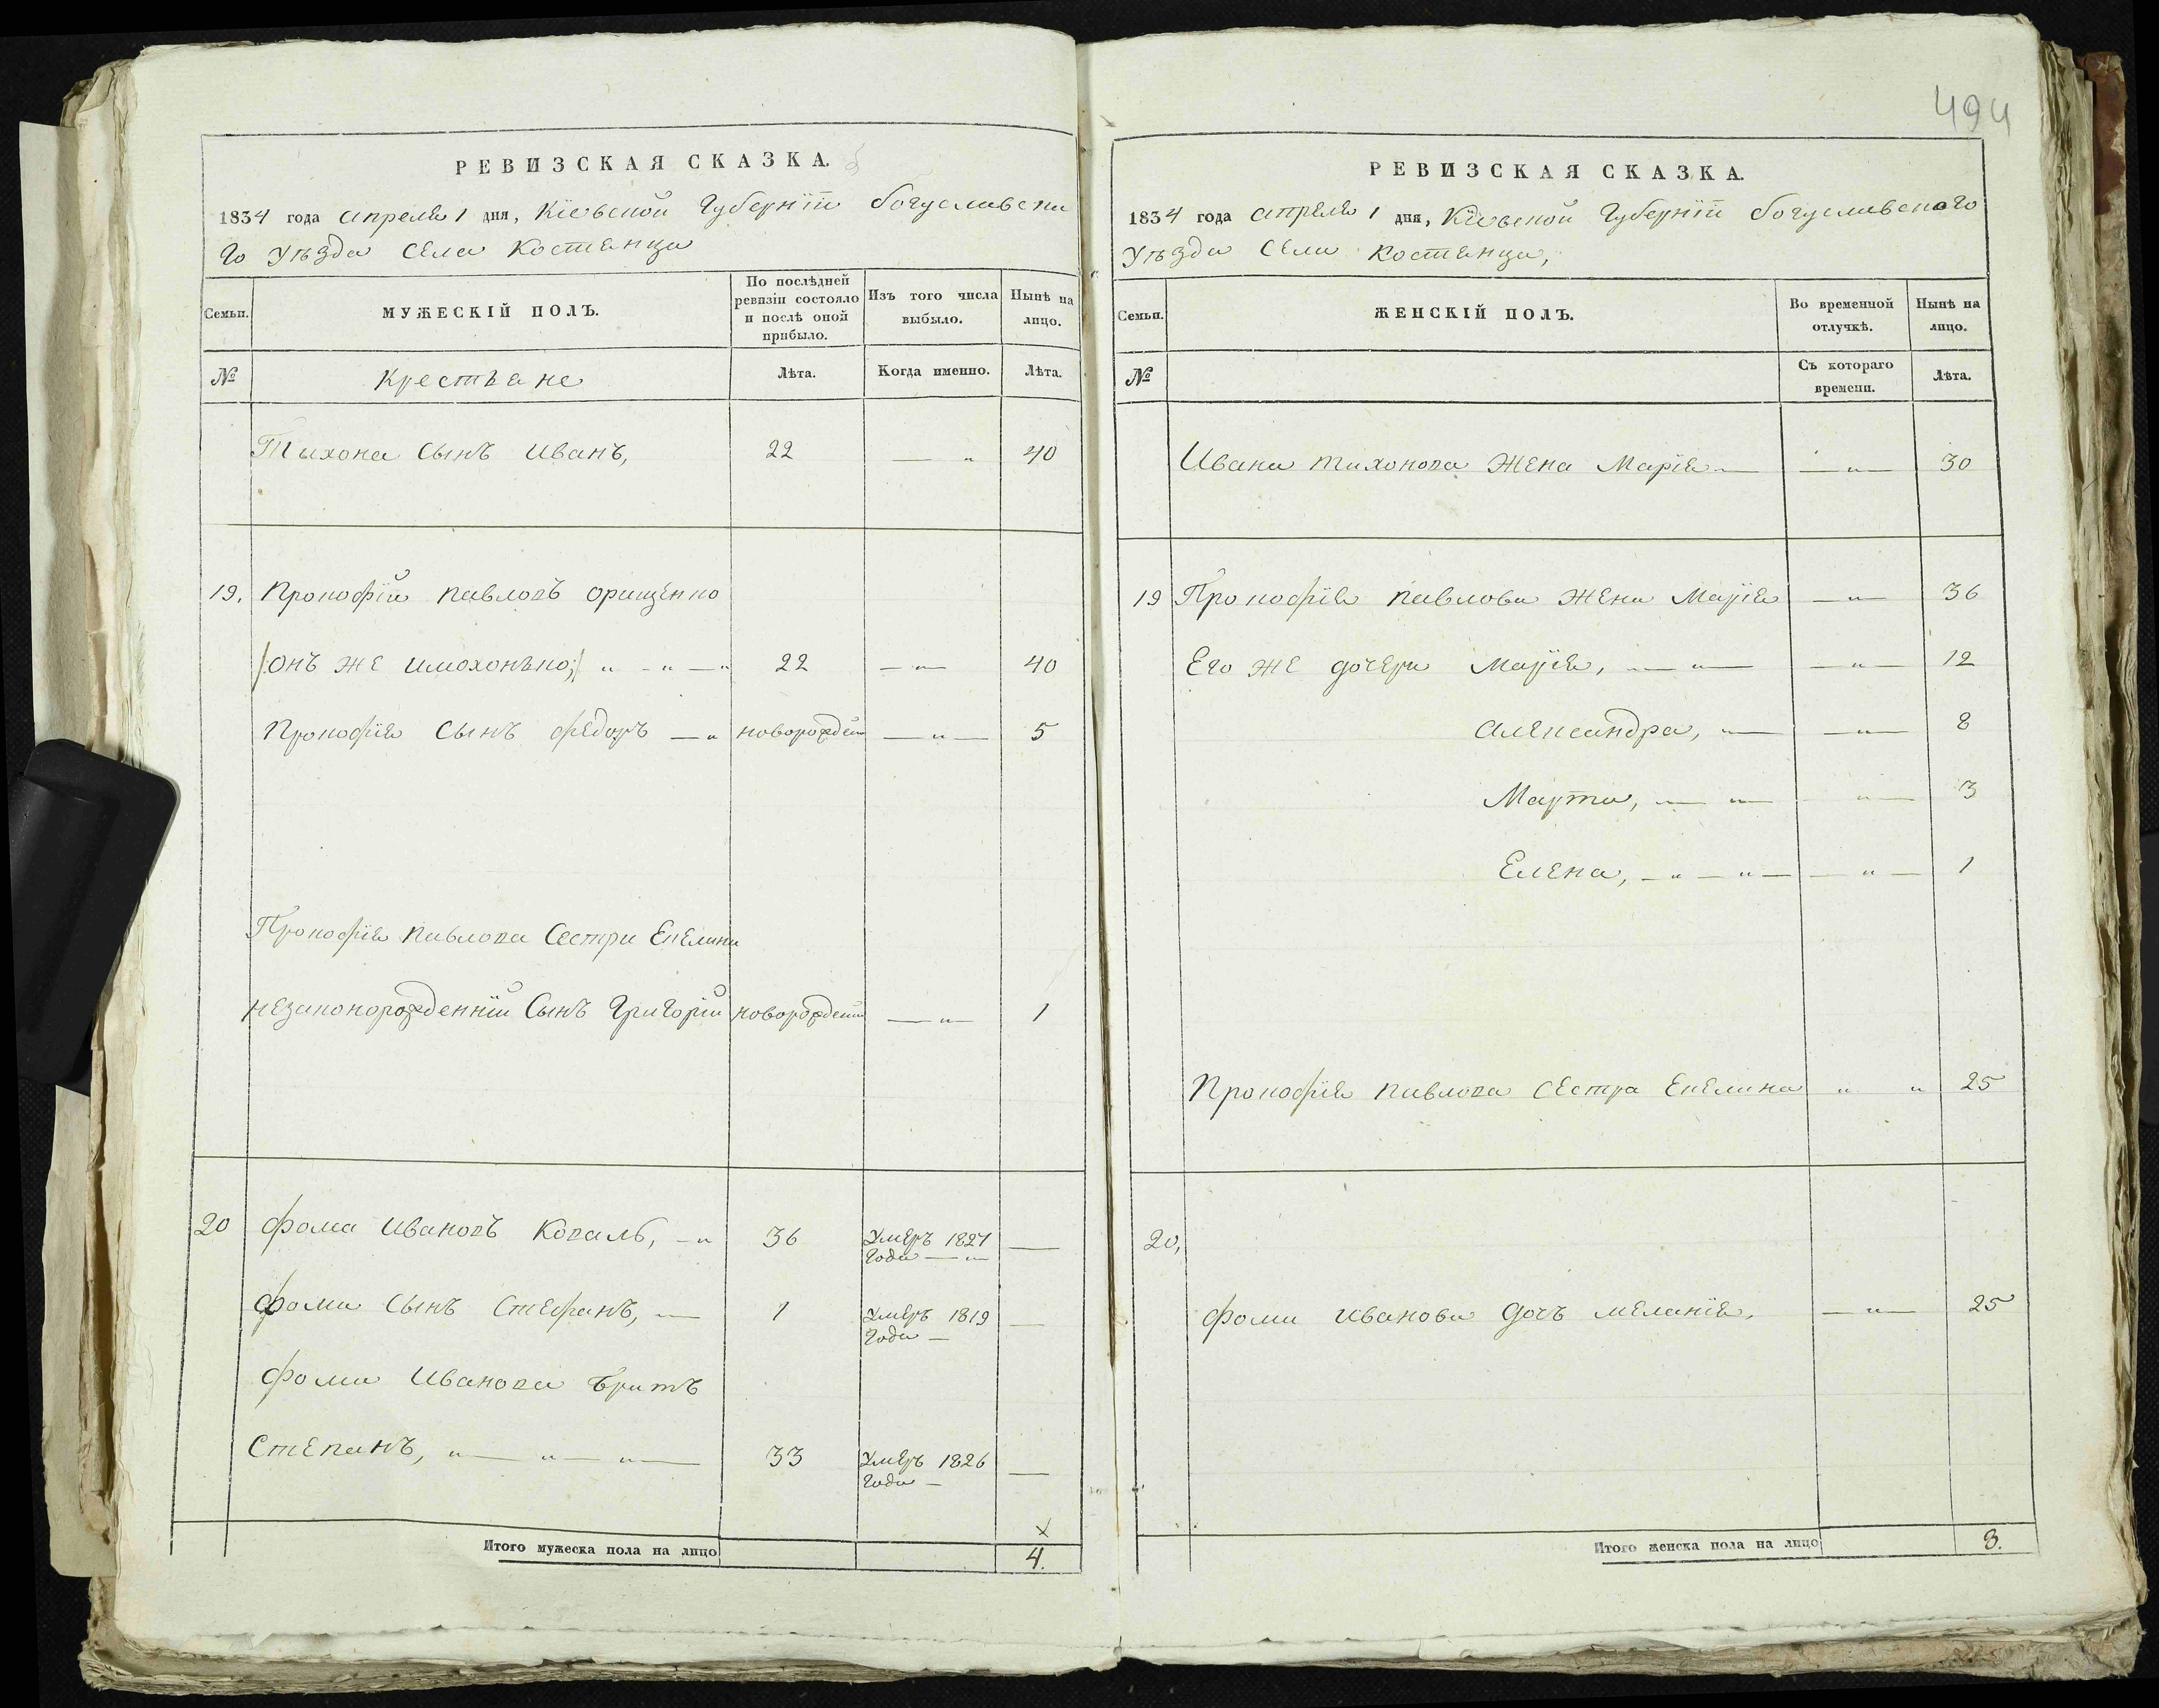 494
РЕВИЗСКАЯ СКАЗКА.
1834 года апреля 1 дня, Кіевской Губерніи богуславска
го уѣзда села Костянца
Семьи.
МУЖЕСКІЙ ПОЛЪ.
По послѣдней ревизіи состояло и послѣ оной прибыло.
Изъ того числа выбыло.
Нынѣ на лицо.
№
Крестьяне
Лѣта.
Когда именно.
Лѣта.
Тихона сынъ Иванъ, 22 — „ 40
19. Прокофій павловъ орищенко
/онъ же имохонѣко;/ „ - „ — „ 22 — „ — 40
Прокофія сынъ федоръ — „ новорожден — „ — 5
Прокофія павлова сестри Екелини
незаконорожденній сынъ Григорій новорожден — „ — 1
20 фома Ивановъ Коваль, — „ 36 умеръ 1827 —
года — „ —
фоми сынъ Стефанъ, „ — 1 умеръ 1819 —
года —
фоми Иванова братъ
Степанъ, „ — „ — „ — 33 умеръ 1826 —
года —
Итого мужеска пола на лицо 4.
РЕВИЗСКАЯ СКАЗКА.
1834 года апреля 1 дня, Кіевской Губерніи богуславскаго
уѣзда села Костянца,
Семьи.
ЖЕНСКІЙ ПОЛЪ.
Во временной отлучкѣ.
Нынѣ на лицо.
№
Съ котораго времени.
Лѣта.
Ивана тихонова жена Марія — — „ — 30
19 Прокофія павлова жена Марія — „ — 36
Его же дочери Марія, — „ — — „ — 12
александра, „ — — „ — 8
Марта, — „ — „ — 3
Елена, — „ — „ — — „ — 1
Прокофія павлова сестра Екелина „ „ 25
20,
фоми иванова дочъ меланія, — „ — 25
Итого женска пола на лицо 8.